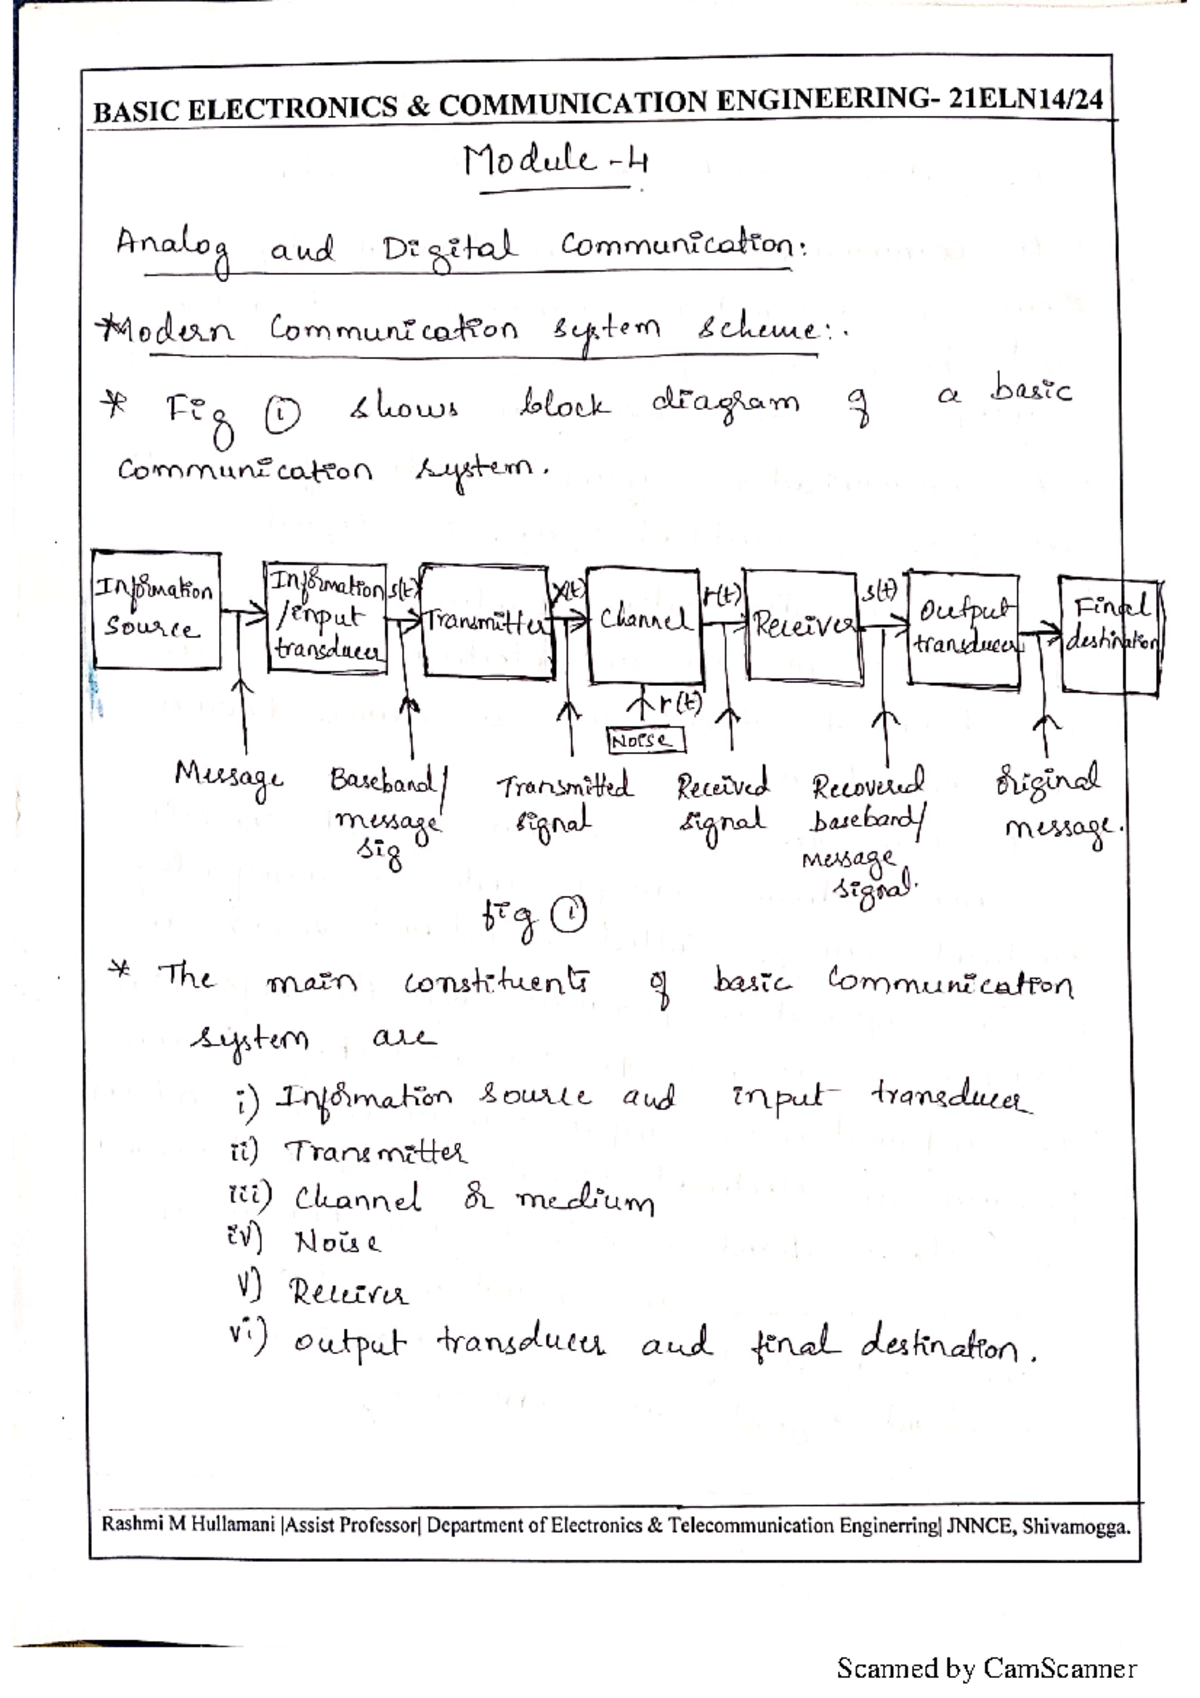 BASIC ELECTRONICS & COMMUNICATION ENGINEERING- 21ELN14/24
Module -4
Analog and Digital Communication:
*Modern Communication system scheme:.
* Fig ① shows block diagram of a basic
Communication system.
Information
Source
Information
/input
transducer
s(t)
Transmitter
x(t)
Channel
r(t)
Receiver
s(t)
Output
transducer
Final
destination
r(t)
Noise
Message
Baseband/
message
sig
Transmitted
signal
Received
signal
Recovered
baseband/
Message
signal.
Original
message.
fig ①
* The main constituents of basic Communication
system are
i) Information source and input transducer
ii) Transmitter
iii) Channel or medium
iv) Noise
v) Receiver
vi) output transducer and final destination.
Rashmi M Hullamani |Assist Professor| Department of Electronics & Telecommunication Enginerring| JNNCE, Shivamogga.
Scanned by CamScanner